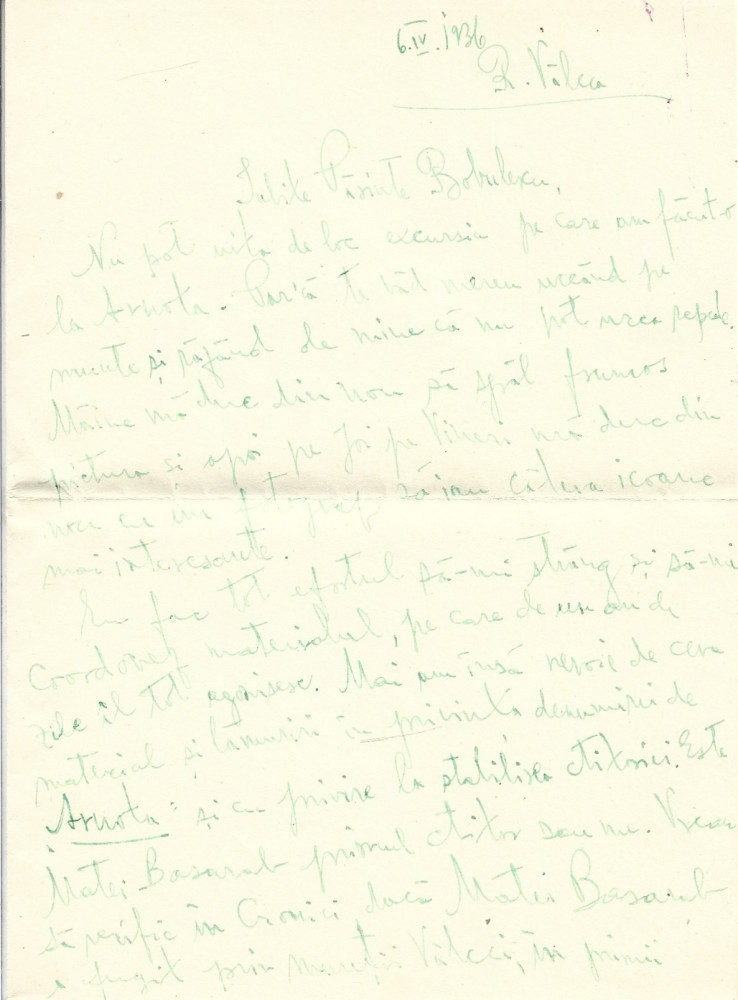 6.IV.1936
R. Vâlcea
Iubite Părinte Bobulescu,
Nu pot uita de loc excursia pe care am făcut-o
la Arnota. Par'că te văd mereu urcând pe
munte și râzând de mine că nu pot urca repede.
Mâine mă duc din nou să spăl frumos
pictura și apoi pe Joi pe Vineri mă duc din
nou cu un fotograf să iau câteva icoane
mai interesante.
Eu fac tot efortul să-mi strâng și să-mi
coordonez materialul, pe care de un an de
zile îl tot agonisesc. Mai am însă nevoie de ceva
material și lămuriri în privința denumirii de
"Arnota" și cu privire la stabilirea ctitoriei. Este
Matei-Basarab primul ctitor sau nu. Vreau
să verific în Cronici dacă Matei Basarab
a fugit prin munții Vâlcii, în primii